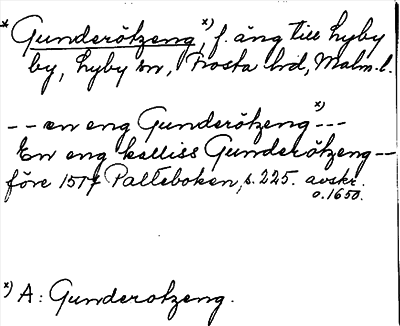 * Gunderötzeng x), f. äng till Hyby
by, Hyby sn, Frosta hd, Malm. l.
-- en eng Gunderötzeng x) ---
En eng kalliss Gunderötzeng --
före 1517 Palteboken, s. 225. avskr.
o. 1650.
x) A: Gunderotzeng.